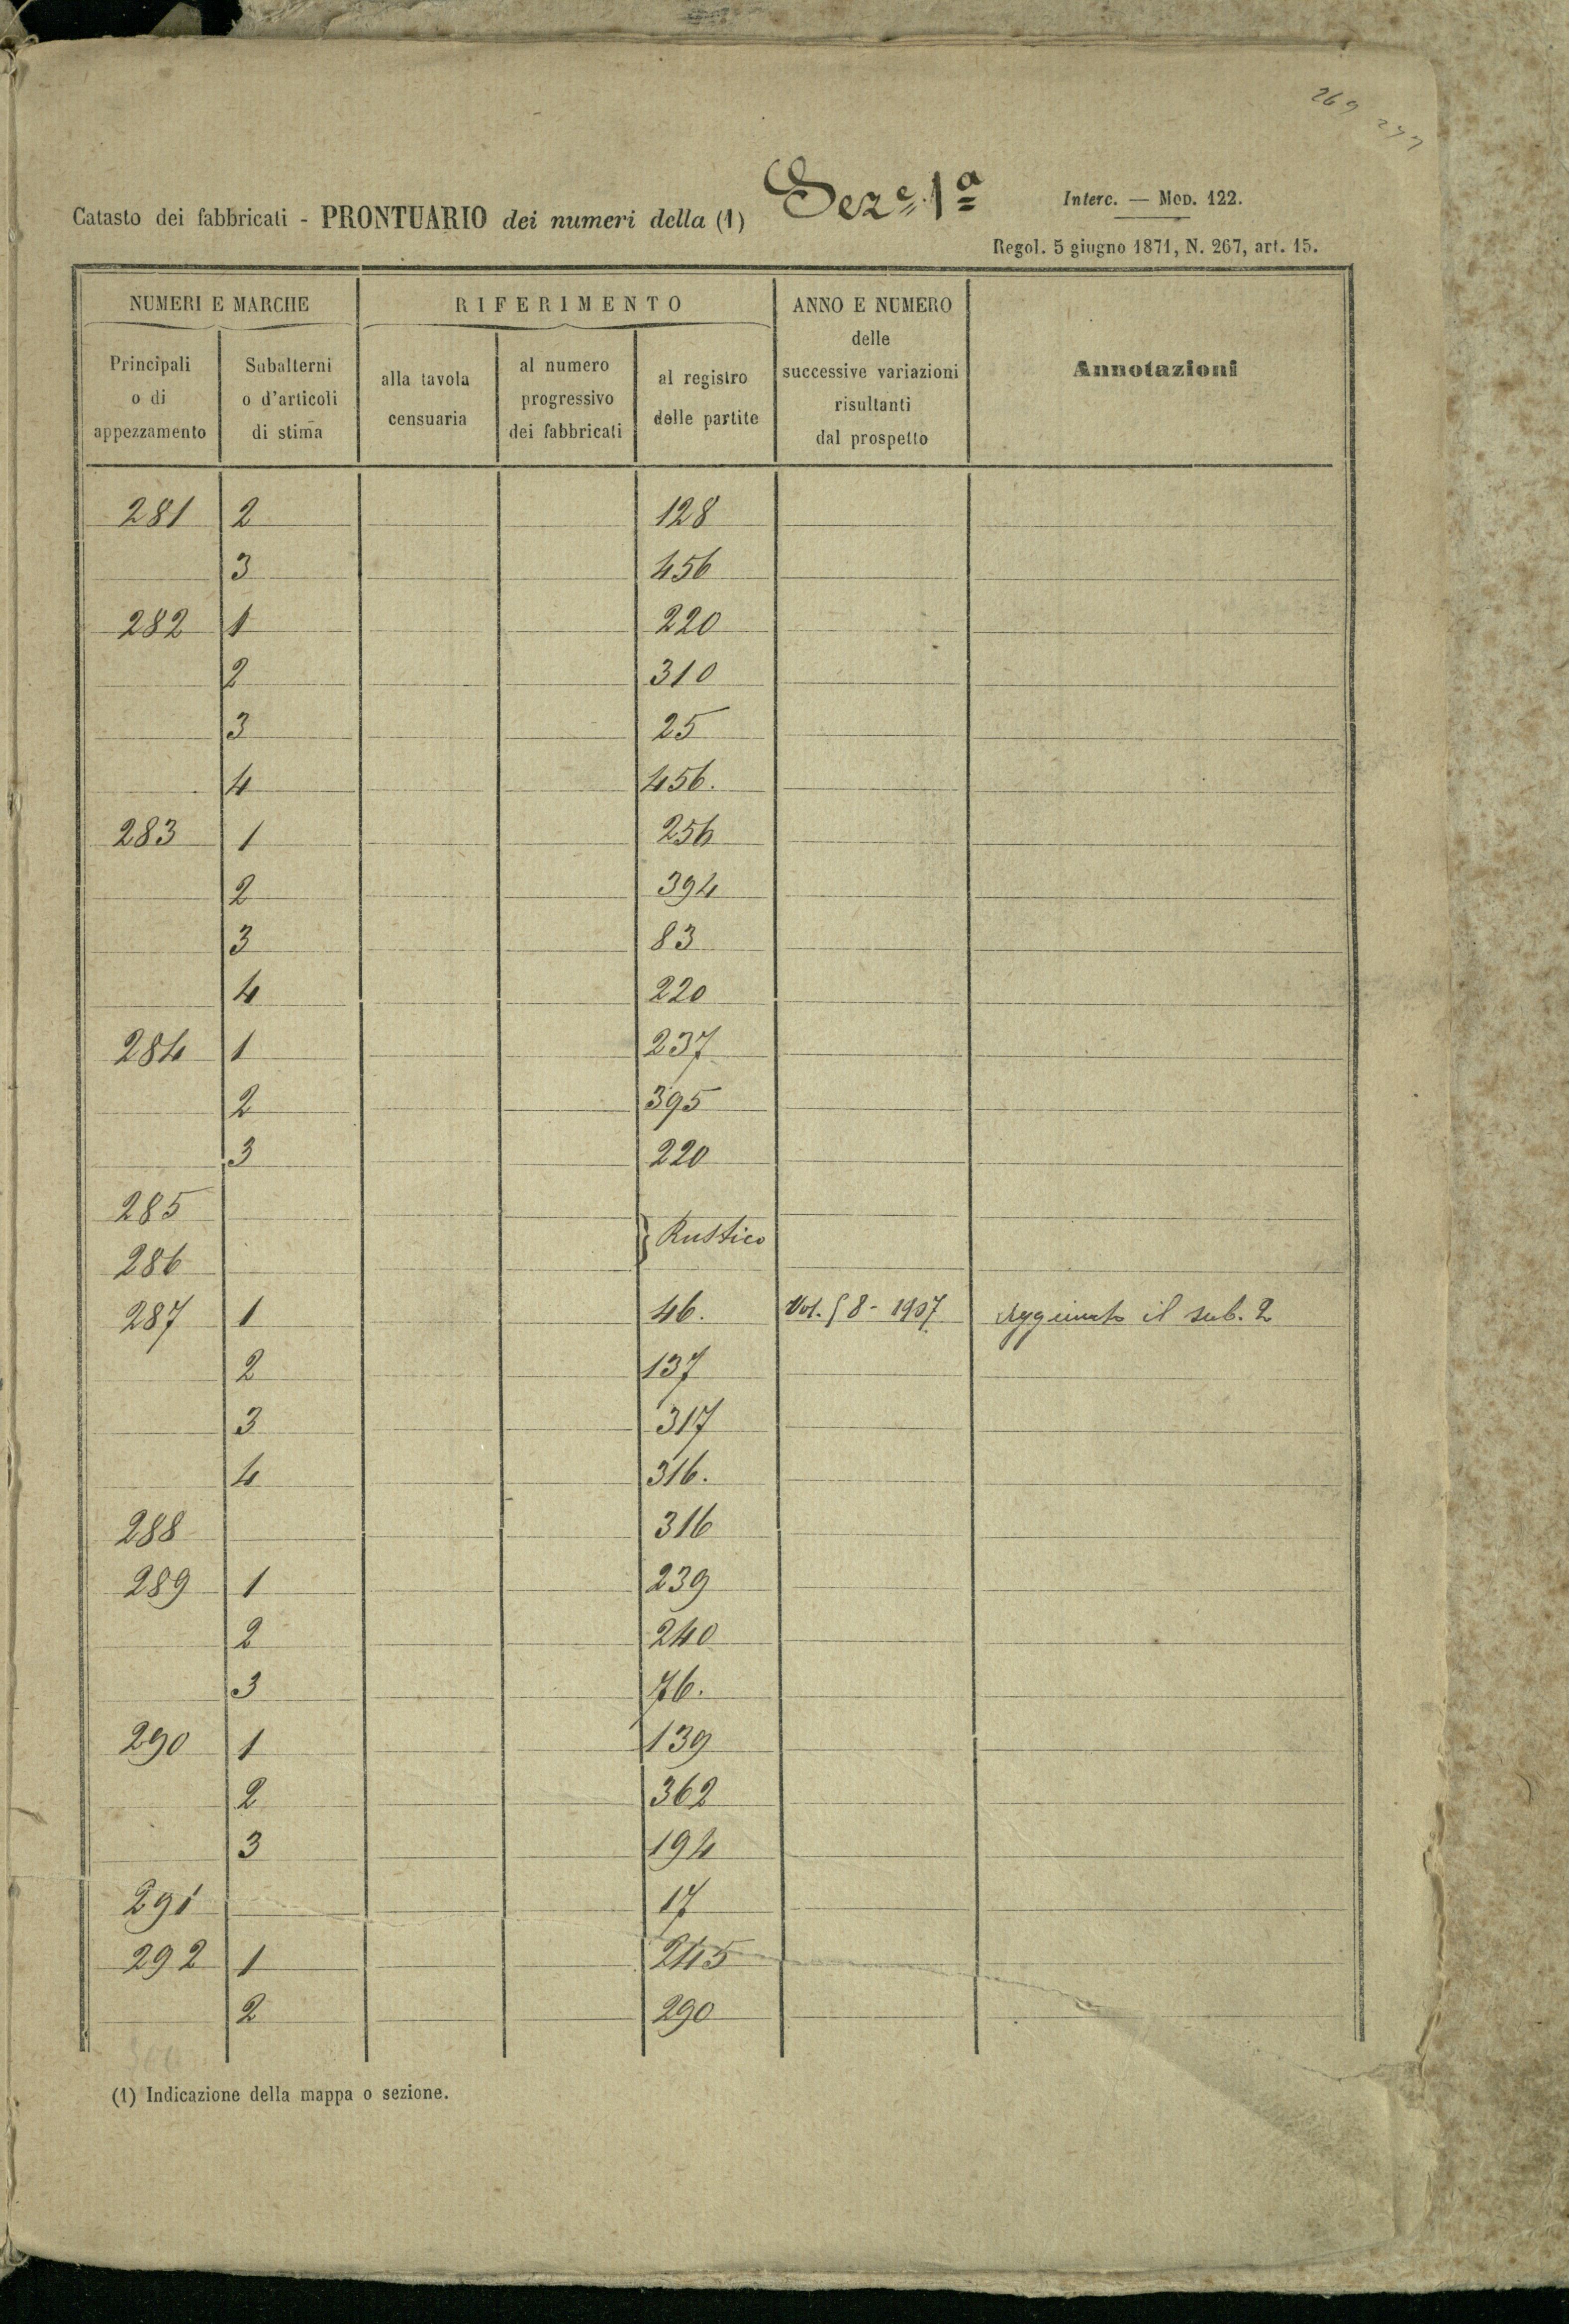 269
Catasto dei fabbricati - PRONTUARIO dei numeri della (1) Seze 1a
Interc. — Mod. 122.
Regol. 5 giugno 1871, N. 267, art. 15.
NUMERI E MARCHE RIFERIMENTO ANNO E NUMERO delle successive variazioni risultanti dal prospetto Annotazioni
Principali o di appezzamento Subalterni o d'articoli di stima alla tavola censuaria al numero progressivo dei fabbricati al registro delle partite
281 2 128
3 456
282 1 220
2 310
3 25
4 456.
283 1 254
2 394
3 83
4 220
284 1 237
2 395
3 220
285
} Rustico
286
287 1 46. Vol. § 8 - 1907 Aggiunto il sub. 2
2 137
3 317
4 316.
288 316
289 1 239
2 240
3 76.
290 1 139
2 362
3 194
291 17
292 1 245
2 290
(1) Indicazione della mappa o sezione.